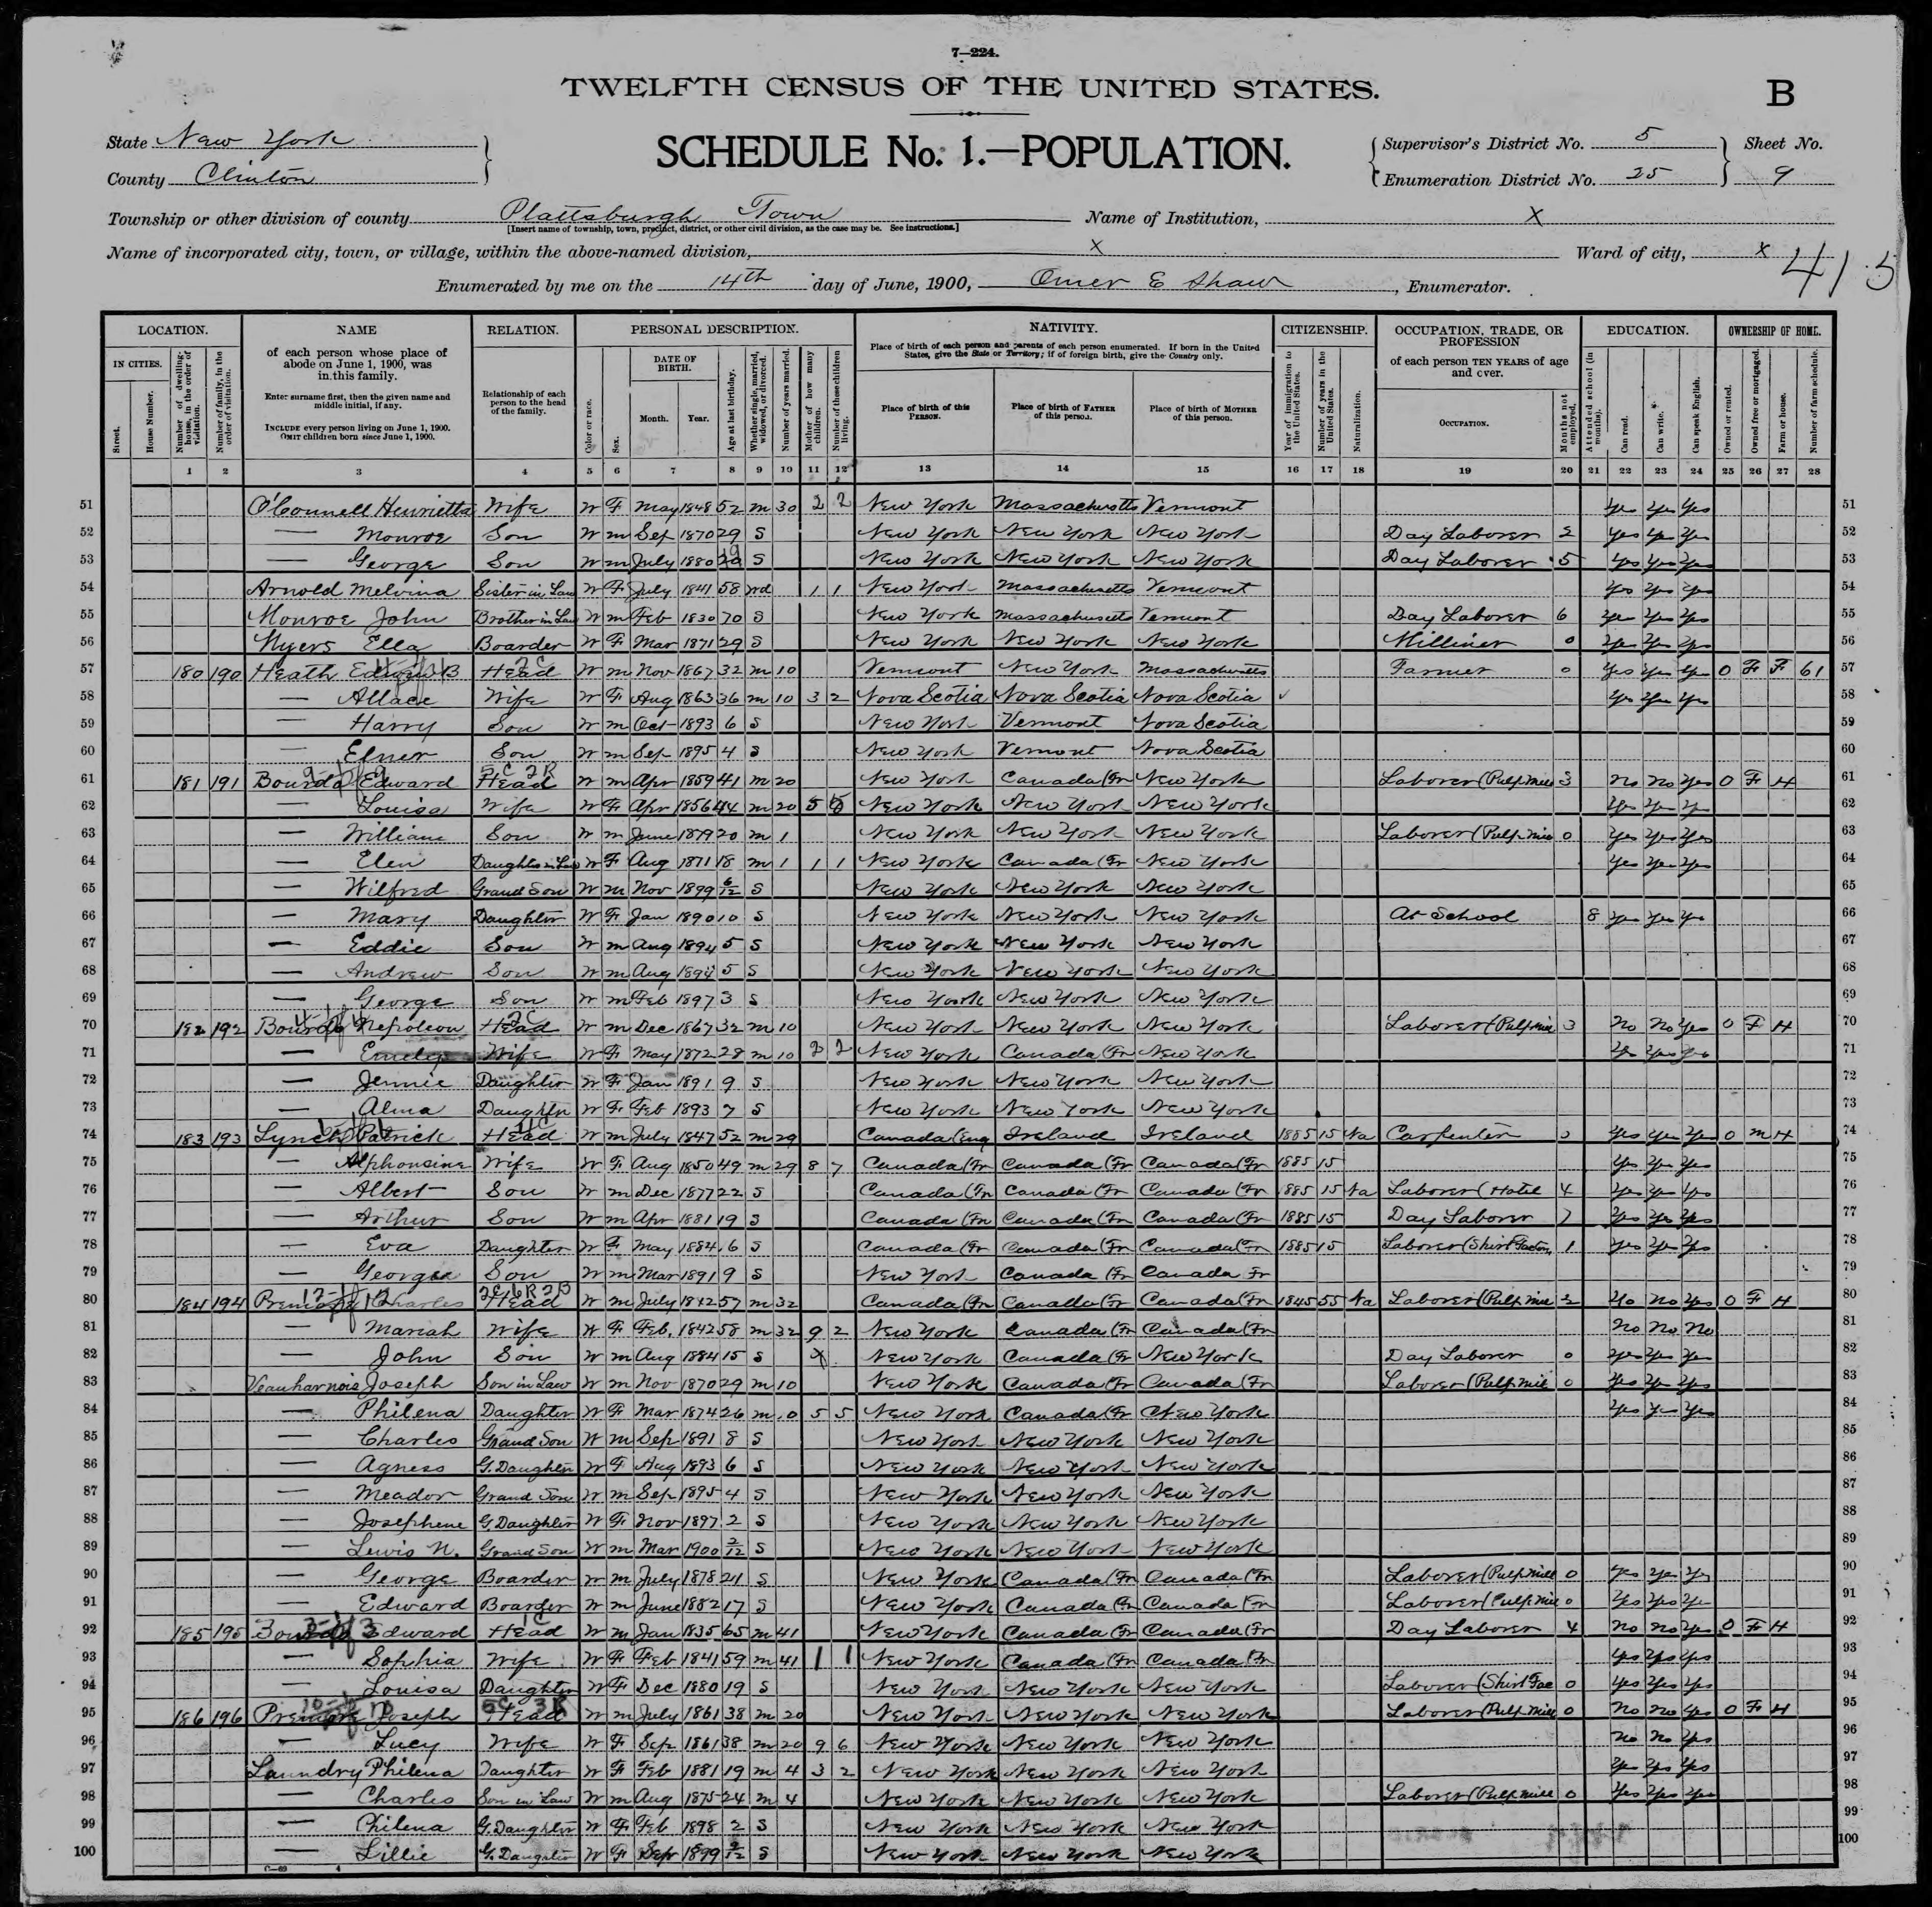 7—224.
TWELFTH CENSUS OF THE UNITED STATES.
B
State New York
SCHEDULE No. 1.—POPULATION.
Supervisor's District No. 5
Sheet No.
County Clinton
Enumeration District No. 25
9
Township or other division of county Plattsburgh Town
Name of Institution, X
[Insert name of township, town, precinct, district, or other civil division, as the case may be. See instructions.]
Name of incorporated city, town, or village, within the above-named division, X
Ward of city, X
415
Enumerated by me on the 14th day of June, 1900, Omer E Shaw, Enumerator.
LOCATION. NAME RELATION. PERSONAL DESCRIPTION. NATIVITY. CITIZENSHIP. OCCUPATION, TRADE, OR PROFESSION EDUCATION. OWNERSHIP OF HOME.
IN CITIES.
Street.
House Number.
Number of dwelling-house, in the order of visitation.
Number of family, in the order of visitation.
of each person whose place of abode on June 1, 1900, was in this family.
Enter surname first, then the given name and middle initial, if any.
INCLUDE every person living on June 1, 1900.
OMIT children born since June 1, 1900.
Relationship of each person to the head of the family.
Color or race.
Sex.
DATE OF BIRTH.
Month. Year.
Age at last birthday.
Whether single, married, widowed, or divorced.
Number of years married.
Mother of how many children.
Number of these children living.
Place of birth of each person and parents of each person enumerated. If born in the United States, give the State or Territory; if of foreign birth, give the Country only.
Place of birth of this PERSON.
Place of birth of FATHER of this person.
Place of birth of MOTHER of this person.
Year of immigration to the United States.
Number of years in the United States.
Naturalization.
of each person TEN YEARS of age and over.
OCCUPATION.
Months not employed.
Attended school (in months).
Can read.
Can write.
Can speak English.
Owned or rented.
Owned free or mortgaged.
Farm or house.
Number of farm schedule.
1 2 3 4 5 6 7 8 9 10 11 12 13 14 15 16 17 18 19 20 21 22 23 24 25 26 27 28
51 O'Connell Henrietta Wife W F May 1848 52 m 30 2 2 New York Massachusetts Vermont Yes Yes Yes 51
52 — Monroe Son W m Sep 1870 29 S New York New York New York Day Laborer 2 Yes Yes Yes 52
53 — George Son W m July 1880 S New York New York New York Day Laborer 5 Yes Yes Yes 53
54 Arnold Melvina Sister in Law W F July 1841 58 Wd 1 1 New York Massachusetts Vermont Yes Yes Yes 54
55 Monroe John Brother in Law W m Feb 1830 70 S New York Massachusetts Vermont Day Laborer 6 Yes Yes Yes 55
56 Myers Ella Boarder W F Mar 1871 29 S New York New York New York Milliner 0 Yes Yes Yes 56
57 180 190 Heath B Head W m Nov 1867 32 m 10 Vermont New York Massachusetts Farmer 0 Yes Yes Yes O F F 61 57
58 — Allace Wife W F Aug 1863 36 m 10 3 2 Nova Scotia Nova Scotia Nova Scotia ✓ Yes Yes Yes 58
59 — Harry Son W m Oct 1893 6 S New York Vermont Nova Scotia 59
60 — Elmer Son W m Sep 1895 4 S New York Vermont Nova Scotia 60
61 181 191 Edward Head W m Apr 1859 41 m 20 New York Canada (Fr New York Laborer (Pulp Mill 3 no no Yes O F H 61
62 — Louisa Wife W F Apr 1856 44 m 20 5 5 New York New York New York Yes Yes Yes 62
63 — William Son W m June 1879 20 m 1 New York New York New York Laborer (Pulp mill 0 Yes Yes Yes 63
64 — Elen Daughter in Law W F Aug 18 m 1 1 1 New York Canada (Fr New York Yes Yes Yes 64
65 — Wilfred Grand Son W m Nov 1899 6/12 S New York New York New York 65
66 — Mary Daughter W F Jan 1890 10 S New York New York New York At School 8 Yes Yes Yes 66
67 — Eddie Son W m Aug 1894 5 S New York New York New York 67
68 — Andrew Son W m Aug 1894 5 S New York New York New York 68
69 — George Son W m Feb 1897 3 S New York New York New York 69
70 182 192 Nepoleon Head W m Dec 1867 32 m 10 New York New York New York Laborer (Pulp Mill 3 no no Yes O F H 70
71 — Emelyn Wife W F May 1872 28 m 10 2 2 New York Canada (Fr New York Yes Yes Yes 71
72 — Jennie Daughter W F Jan 1891 9 S New York New York New York 72
73 — Alma Daughter W F Feb 1893 7 S New York New York New York 73
74 183 193 Lynch Patrick Head W m July 1847 52 m 29 Canada (Eng Ireland Ireland 1885 15 Na Carpenter 3 Yes Yes Yes O m H 74
75 — Alphonsine Wife W F Aug 1850 49 m 29 8 7 Canada (Fr Canada (Fr Canada (Fr 1885 15 Yes Yes Yes 75
76 — Albert Son W m Dec 1877 22 S Canada (Fr Canada (Fr Canada (Fr 1885 15 Na Laborer (Hotel 4 Yes Yes Yes 76
77 — Arthur Son W m Apr 1881 19 S Canada (Fr Canada (Fr Canada (Fr 1885 15 Day Laborer 7 Yes Yes Yes 77
78 — Eva Daughter W F May 1884 16 S Canada (Fr Canada (Fr Canada (Fr 1885 15 Laborer (Shirt Factory 1 Yes Yes Yes 78
79 — George Son W m Mar 1891 9 S New York Canada (Fr Canada Fr 79
80 184 194 Charles Head W m July 1842 57 m 32 Canada (Fr Canada (Fr Canada (Fr 1845 55 Na Laborer (Pulp Mill 2 no no Yes O F H 80
81 — Mariah Wife W F Feb. 1842 58 m 32 9 2 New York Canada (Fr Canada (Fr no no no 81
82 — John Son W m Aug 1884 15 S New York Canada (Fr New York Day Laborer 0 Yes Yes Yes 82
83 Veauharnois Joseph Son in Law W m Nov 1870 29 m 10 New York Canada (Fr Canada (Fr Laborer (Pulp Mill 0 Yes Yes Yes 83
84 — Philena Daughter W F Mar 1874 26 m 10 5 5 New York Canada (Fr New York Yes Yes Yes 84
85 — Charles Grand Son W m Sep 1891 8 S New York New York New York 85
86 — Agness G. Daughter W F Aug 1893 6 S New York New York New York 86
87 — Meador Grand Son W m Sep 1895 4 S New York New York New York 87
88 — Josephene G. Daughter W F Nov 1897 2 S New York New York New York 88
89 — Lewis N. Grand Son W m Mar 1900 2/12 S New York New York New York 89
90 — George Boarder W m July 1878 21 S New York Canada (Fr Canada (Fr Laborer (Pulp Mill 0 Yes Yes Yes 90
91 — Edward Boarder W m June 1882 17 S New York Canada (Fr Canada (Fr Laborer (Pulp Mill 0 Yes Yes Yes 91
92 185 195 Edward Head W m Jan 1835 65 m 41 New York Canada (Fr Canada (Fr Day Laborer 4 no no Yes O F H 92
93 — Sophia Wife W F Feb 1841 59 m 41 1 1 New York Canada (Fr Canada (Fr Yes Yes Yes 93
94 — Louisa Daughter W F Dec 1880 19 S New York New York New York Laborer (Shirt Fac 0 Yes Yes Yes 94
95 186 196 Joseph Head W m July 1861 38 m 20 New York New York New York Laborer (Pulp Mill 0 no no Yes O F H 95
96 — Lucy Wife W F Sep 1861 38 m 20 9 6 New York New York New York no no Yes 96
97 Laundry Philena Daughter W F Feb 1881 19 m 4 3 2 New York New York New York Yes Yes Yes 97
98 — Charles Son in Law W m Aug 1875 24 m 4 New York New York New York Laborer (Pulp Mill 0 Yes Yes Yes 98
99 — Philena G. Daughter W F Feb 1898 2 S New York New York New York 99
100 — Lillie G. Daughter W F Sep 1899 S New York New York New York 100